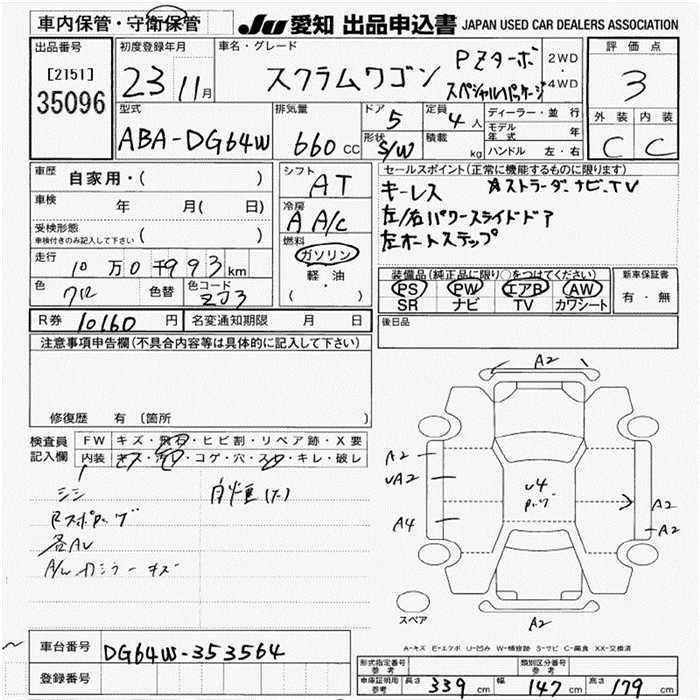 車内保管・守衛保管
JU 愛知 出品申込書 JAPAN USED CAR DEALERS ASSOCIATION
出品番号
[2151]
35096
初度登録年月
23 11月
車名・グレード
スクラムワゴン
PZターボ
スペシャルパッケージ
2WD
・
4WD
評価点
3
外装 内装
C C
型式
ABA-DG64W
排気量
660 cc
ドア 5
形状 S/W
定員 4 人
積載 kg
ディーラー・並行
モデル年式 年
ハンドル 左・右
車歴
自家用・( )
車検 年 月( 日)
受検形態
車検付きのみ記入して下さい ( )
走行
10万0千993km
色 クロ 色替 色コード ZJ3
シフト
AT
冷房
A A/C
燃料
ガソリン
軽・油
( )
セールスポイント(正常に機能するものに限ります)
キーレス ストラーダナビ、TV
左/右パワースライドドア
左オートステップ
装備品(純正品に限り○をつけてください)
PS PW エアB AW
SR ナビ TV カワシート
新車保証書
有・無
R券 10160 円 名変通知期限 月 日
後日品
注意事項申告欄(不具合内容等は具体的に記入して下さい)
修復歴 有 (箇所
検査員
記入欄
FW キズ・飛石・ヒビ割・リペア跡・X要
内装 キズ・汚レ・コゲ・穴・スレ・キレ・破レ
シミ
各AU
A/W ガラリーキズ
A2
A2
UA2
A4
U4
A2
A2
A2
スペア
A-キズ E-エクボ U-凹み W-補修跡 S-サビ C-腐食 XX-交換済
車台番号 DG64W-353564
登録番号
形式指定番号 参考
類別区分番号 参考
車庫証明用 参考 長さ 339 cm 幅 147 cm 高さ 179 cm